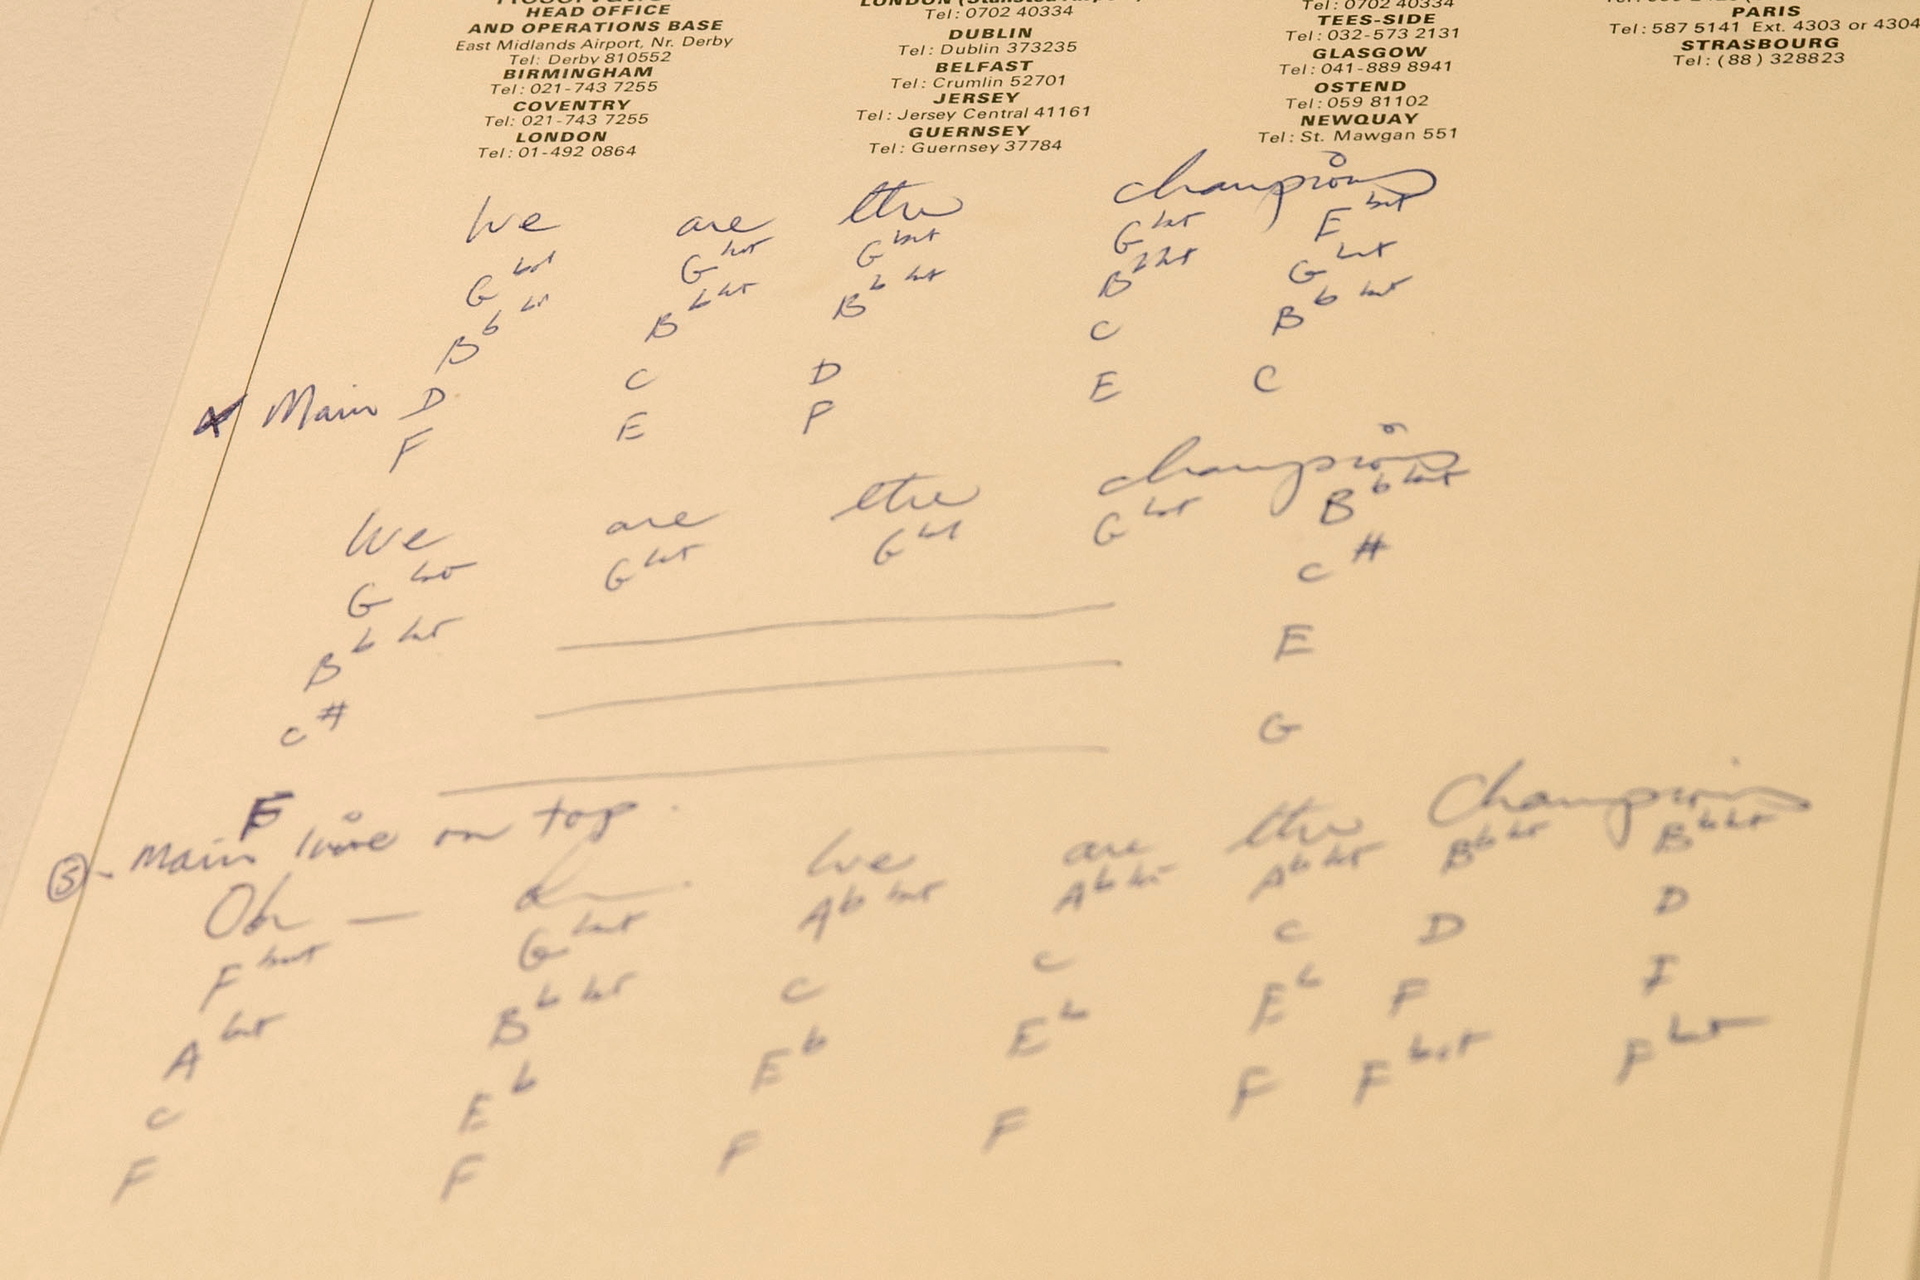 HEAD OFFICE
AND OPERATIONS BASE
East Midlands Airport, Nr. Derby
Tel: Derby 810552
BIRMINGHAM
Tel: 021-743 7255
COVENTRY
Tel: 021-743 7255
LONDON
Tel: 01-492 0864
Tel: 0702 40334
DUBLIN
Tel: Dublin 373235
BELFAST
Tel: Crumlin 52701
JERSEY
Tel: Jersey Central 41161
GUERNSEY
Tel: Guernsey 37784
Tel: 0702 40334
TEES-SIDE
Tel: 032-573 2131
GLASGOW
Tel: 041-889 8941
OSTEND
Tel: 059 81102
NEWQUAY
Tel: St. Mawgan 551
PARIS
Tel: 587 5141 Ext. 4303 or 4304
STRASBOURG
Tel: (88) 328823
We are the champions
G bot G bot G bot G bot E bot
Bb bot Bb bot Bb bot Bb bot G bot
D C D C Bb bot
Main F E F E C
We are the champions
G bot G bot G bot G bot Bb bot
Bb bot C#
C# E
F G
S - Main line on top.
Oh — We are the Champions
F bot G bot Ab bot Ab bot Ab bot Bb bot Bb bot
A bot Bb bot C C C D D
C Eb Eb Eb Eb F F
F F F F F F bot F bot